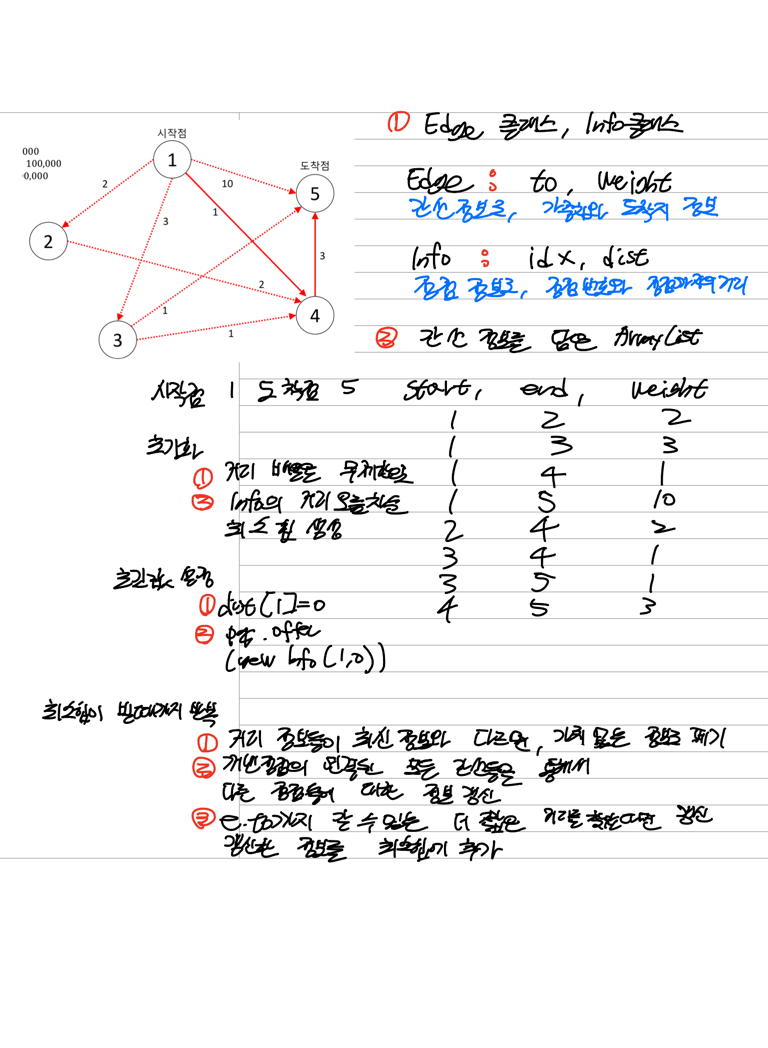 시작점
000
100,000
0,000
1
도착점
2
10
5
1
3
2
2
3
4
1
1
3
① Edge 클래스, Info클래스
Edge : to, weight
간선 정보로, 가중치와 도착지 정보
Info : idx, dist
정점 정보로, 정점번호와 정점까지의 거리
② 간선 정보를 담은 ArrayList
시작점 1 도착점 5
start, end, weight
1 2 2
1 3 3
1 4 1
1 5 10
2 4 2
3 4 1
3 5 1
4 5 3
초기화
① 거리 배열은 무제한으로
② Info의 거리 오름차순
최소힙 생성
초긴값 설정
① dist[1]=0
② pq.offer
(new Info(1,0))
최소힙이 빌때까지 반복
① 거리 정보들이 최신 정보와 다르면, 가치 없는 정보로 폐기
② 개선정점의 연결된 모든 간선들을 통해서
다른 정점들에 대한 정보 갱신
③ e.to까지 갈 수 있는 더 짧은 거리를 찾는다면 갱신
갱신한 정보를 최소힙에 추가